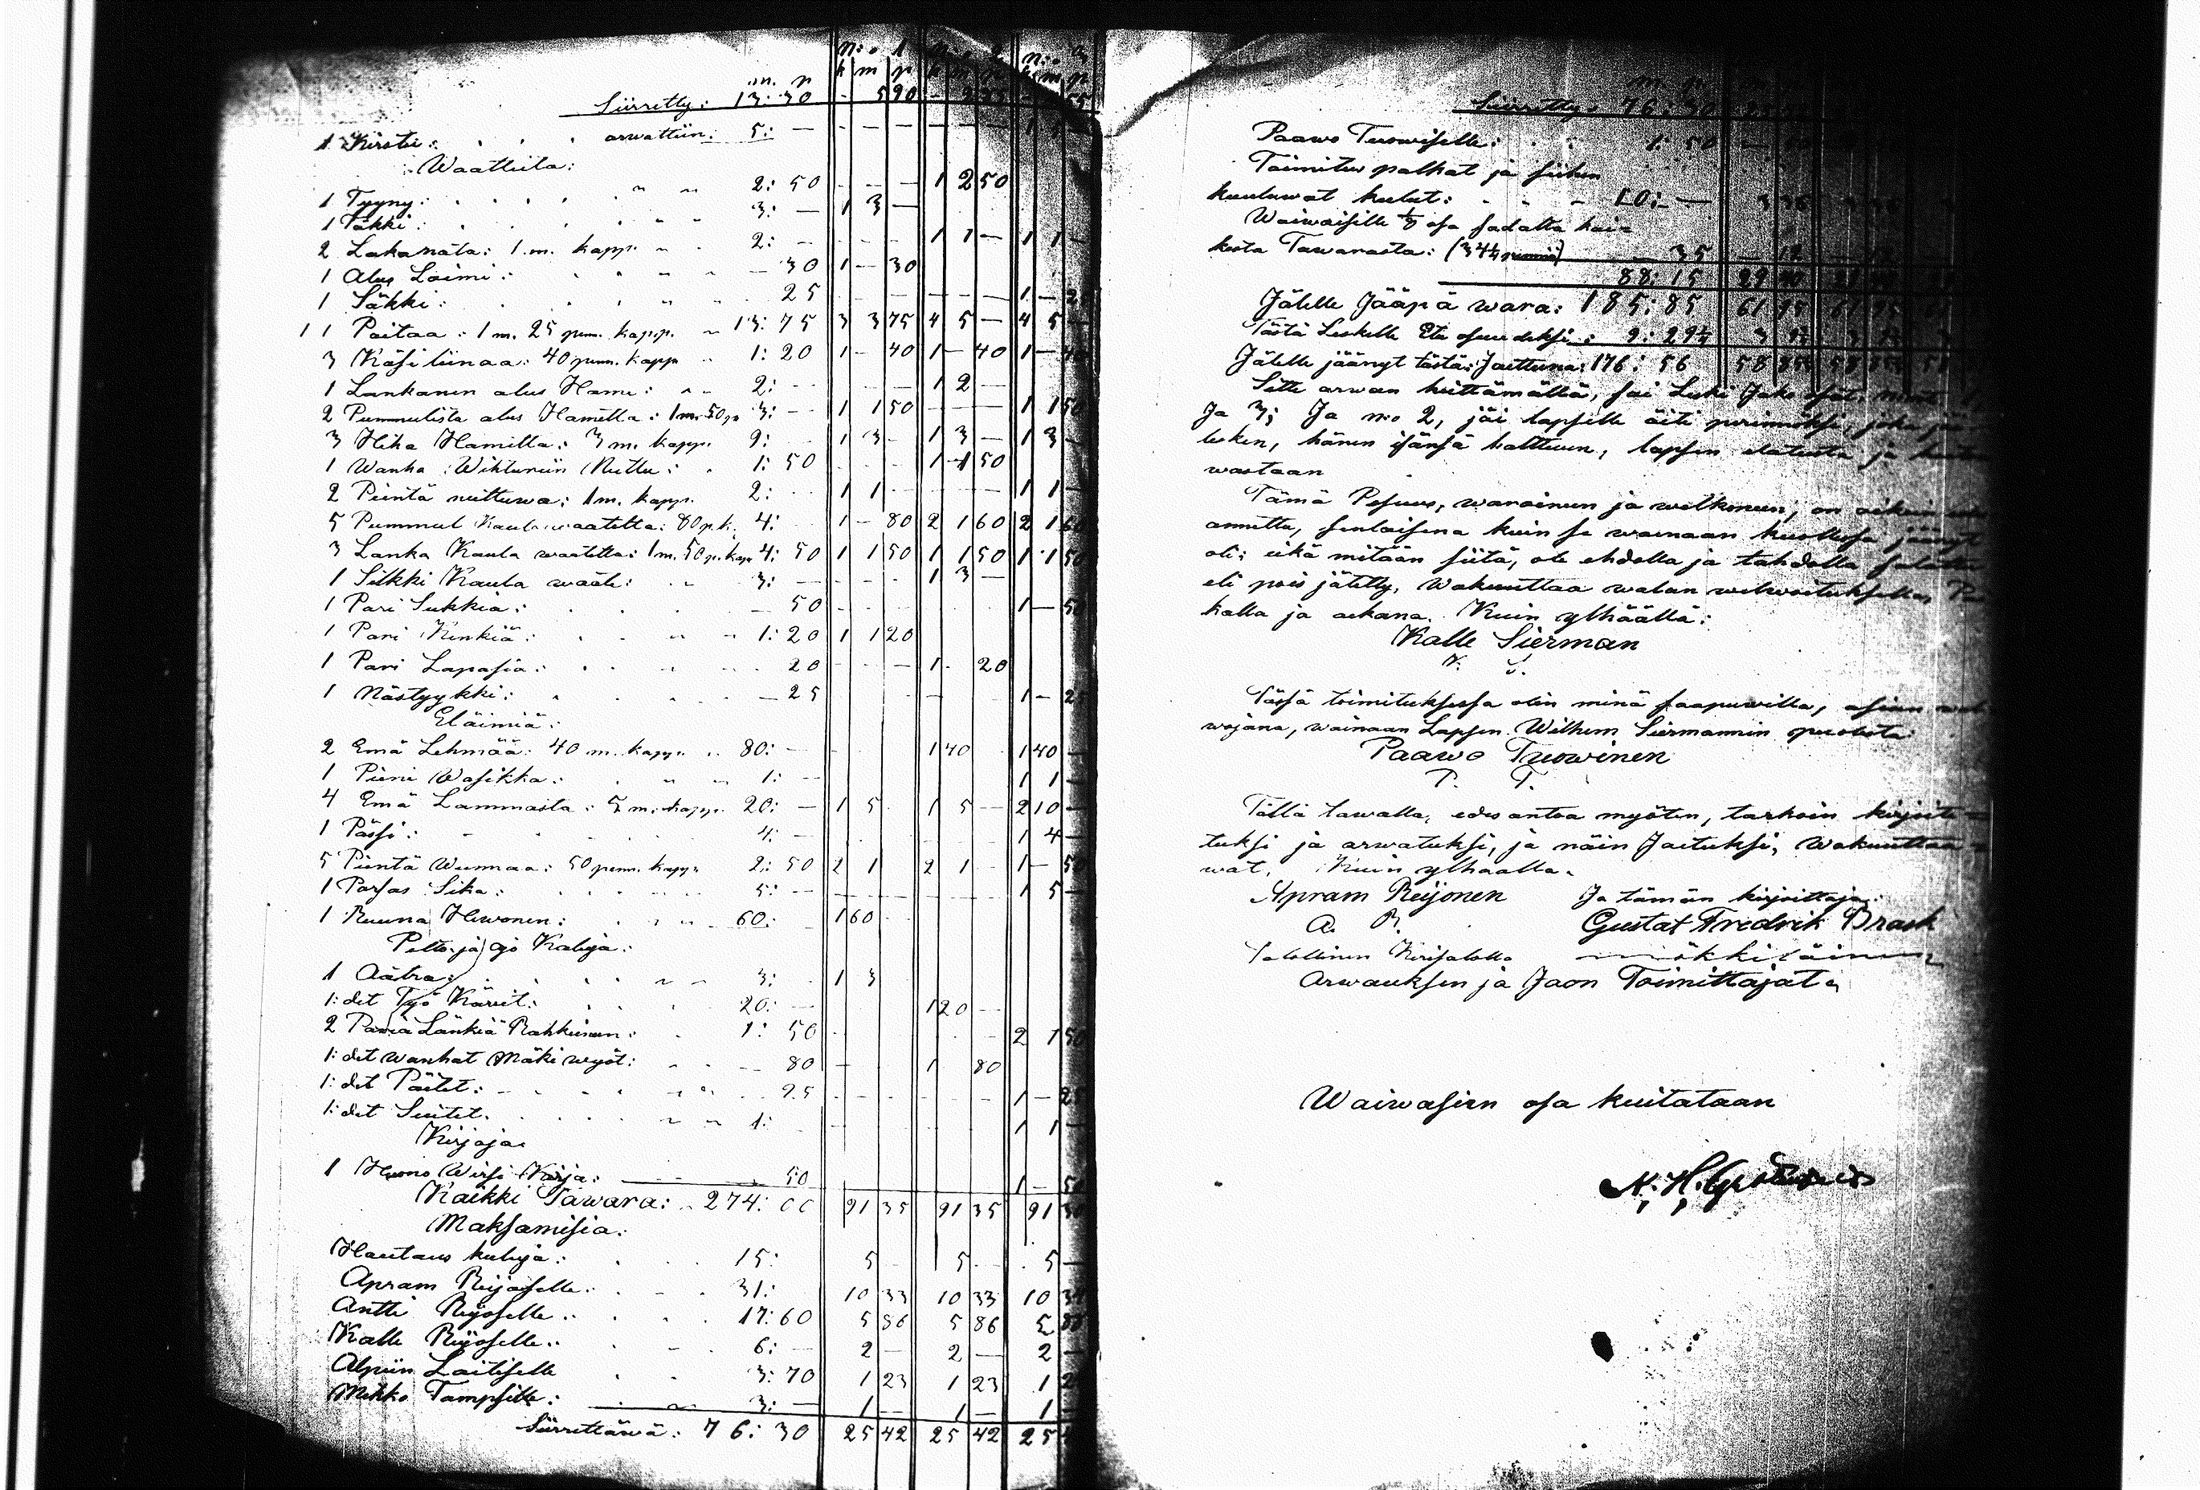 N:o 1 N:o 2 N:o 3
m. p k m p k m p k m p
Siirretty: 13: 30 - 5 90
1 Kirstu: . . . arwattiin: 5: — - — — — — — 1
Waatteita:
1 Tyyny: . . . . " " 2: 50 - — — 1 2 50
1 Säkki: . . . . . " " 3: — 1 3 —
2 Lakanata: 1 m. kapp. " . 2: - — — - 1 1 — 1 1 —
1 Alus Loimi: . " " " — 30 1 — 30
1 Säkki: . . . . " " . 25 — — — — — 1 — 2
11 Paitaa: 1 m. 25 pen. kapp. " 13: 75 3 3 75 4 5 — 4 5 —
3 Käsiliinaa: 40 penn. kapp. " 1: 20 1 — 40 1 — 40 1 — 40
1 Lankanen alus Hame: " " 2: - — - — 1 2 —
2 Pummulista alus Hametta: 1 m. 50 p. 3: — 1 1 50 — — — 1 1 50
3 Hiha Hametta: 3 m. kapp. 9: - 1 3 - 1 3 — 1 3 —
1 Wanha Wihturiin Nuttu: . 1: 50 - - - 1 1 50
2 Pientä nuttuwa: 1 m. kapp. 2: - 1 1 - - — — 1 1 —
5 Pummul Kaula waatetta: 80 p. k. 4: - 1 — 80 2 1 60 2 1 60
3 Lanka Kaula waatetta: 1 m. 50 p. kap. 4: 50 1 1 50 1 1 50 1 1 50
1 Silkki Kaula waate: . . 3: — - - - 1 3 —
1 Pari Sukkia: . . . — 50 - - - 1 — 50
1 Pari Kenkiä: . . " " 1: 20 1 1 20
1 Pari Lapasia: . . " . . 20 - — — 1 - 20
1 Nästyykki: " . . . — 25 — 1 — 2
Eläimiä:
2 Emä Lehmää: 40 m. kapp. .. 80: — 1 40 1 40 —
1 Pieni Wasikka: . " " 1: — 1 1 —
4 Emä Lammasta: 5 m. kapp. 20: — 1 5 1 5 — 2 10 —
1 Pässi: - - . . . 4: — 1 4 —
5 Pientä Wuonaa: 50 penn. kapp. 2: 50 2 1 2 1 - 1 — 50
1 Porsas Sika: . . . . . 5: — — — — — — 1 5 —
1 Ruuna Hewonen: . . " . 60: - 1 60 -
Pelto ja ajo Kaluja:
1 Aatra: . . . . " " 3: . 1 3
1: det Työ Kärrit: . . . 20: — 1 20 —
2 Paria Länkiä Rahkeineen: . 1: 50 - - - 2 1 50
1: det wanhat Mäki wyöt: . . — 80 — 1 80
1: det Päitet: — . . . " . 25 - - - 1 — 25
1: det Suitet. . . . " " 1: . - 1 1 —
Kirjoja.
1 Huono Wirsi Kirja: — — 50 1 — 50
Kaikki Tawara: . 274: 00 91 35 91 35 91 30
Maksamisia:
Hautaus kuluja: . . . 15: 5 - 5 - 5 —
Apram Reijoselle: . . . 31: 10 33 10 33 10 34
Antti Reijoselle: . . . 17: 60 5 86 5 86 5 88
Kalle Reijoselle: . - . 6: — 2 — 2 — 2 —
Alpiin Laitiselle . . 3: 70 1 23 1 23 1 2
Mikko Tampsille: . " 3: — 1 — 1 — 1 —
Siirrettäwä: 76: 30 25 42 25 42 25
m. p.
Siirretty: 76: 30
Paawo Tuowiselle: . : 1: 50
Toimitus palkat ja siihen
kuuluwat kulut: . - - 10: —
Waiwaisille 1/8 osa sadalta kai-
kesta Tawarasta: — 35
88: 15
Jälelle Jääpä wara: 185: 85 61 95 61 95
Tästä Leskelle Etu osuudeksi: 9: 29
Jälelle jäänyt tästä: Jaettuna: 176: 56
Sitte arwan heittämällä, sai Leski Jako osat
Ja 3; Ja n:o 2, jäi lapselle äiti perinnöksi,
lesken, hänen isänsä halttuun, lapsen elatusta ja
wastaan
Tämä Pesuus, waroineen ja welkoneen, on oikein
annettu, senlaisena kuin se wainaan kuollessa jäänyt
oli; eikä mitään siitä, ole ehdolla ja tahdolla salattu
eli pois jätetty, Wakuuttaa walan welwoituksella,
kalla ja aikana. Kuin ylhäällä:
Kalle Sierman
K. S.
Tässä toimituksessa olin minä saapuwilla, asian
wojana, wainaan Lapsen Wilhem Siermannin puolesta
Paawo Tuowinen
P. T.
Tällä tawalla, edes antoa myöten, tarkoin kirjoite-
tuksi ja arwatuksi, ja näin Jaetuksi, Wakuuttaa
wat. Kuin ylhaalla.
Apram Reijonen Ja tämän kirjoittaja:
A. R. Gustat Fredrik Brask
Talollinen mökkiläinen
Arwauksen ja Jaon Toimittajat.
Waiwasien osa kuitataan